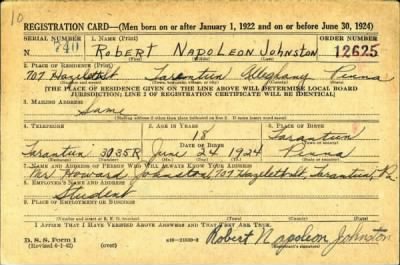 10
REGISTRATION CARD—(Men born on or after January 1, 1922 and on or before June 30, 1924)
SERIAL NUMBER 1. NAME (Print) ORDER NUMBER
N 740 Robert Napoleon Johnston 12625
(First) (Middle) (Last)
2. PLACE OF RESIDENCE (Print)
707 Hazelett St Tarentum Allegheny Penna
(THE PLACE OF RESIDENCE GIVEN ON THE LINE ABOVE WILL DETERMINE LOCAL BOARD
JURISDICTION; LINE 2 OF REGISTRATION CERTIFICATE WILL BE IDENTICAL)
3. MAILING ADDRESS
Same
4. TELEPHONE 5. AGE IN YEARS 6. PLACE OF BIRTH
18 Tarentum
DATE OF BIRTH
Tarentum 3035R June 24 1924 Penna
7. NAME AND ADDRESS OF PERSON WHO WILL ALWAYS KNOW YOUR ADDRESS
Mr Howard Johnston 707 Hazelett St, Tarentum, Pa.
8. EMPLOYER'S NAME AND ADDRESS
Student
9. PLACE OF EMPLOYMENT OR BUSINESS
I AFFIRM THAT I HAVE VERIFIED ABOVE ANSWERS AND THAT THEY ARE TRUE.
D. S. S. Form 1
(Revised 6-1-42) (over) Robert Napoleon Johnston
(Registrant's signature)